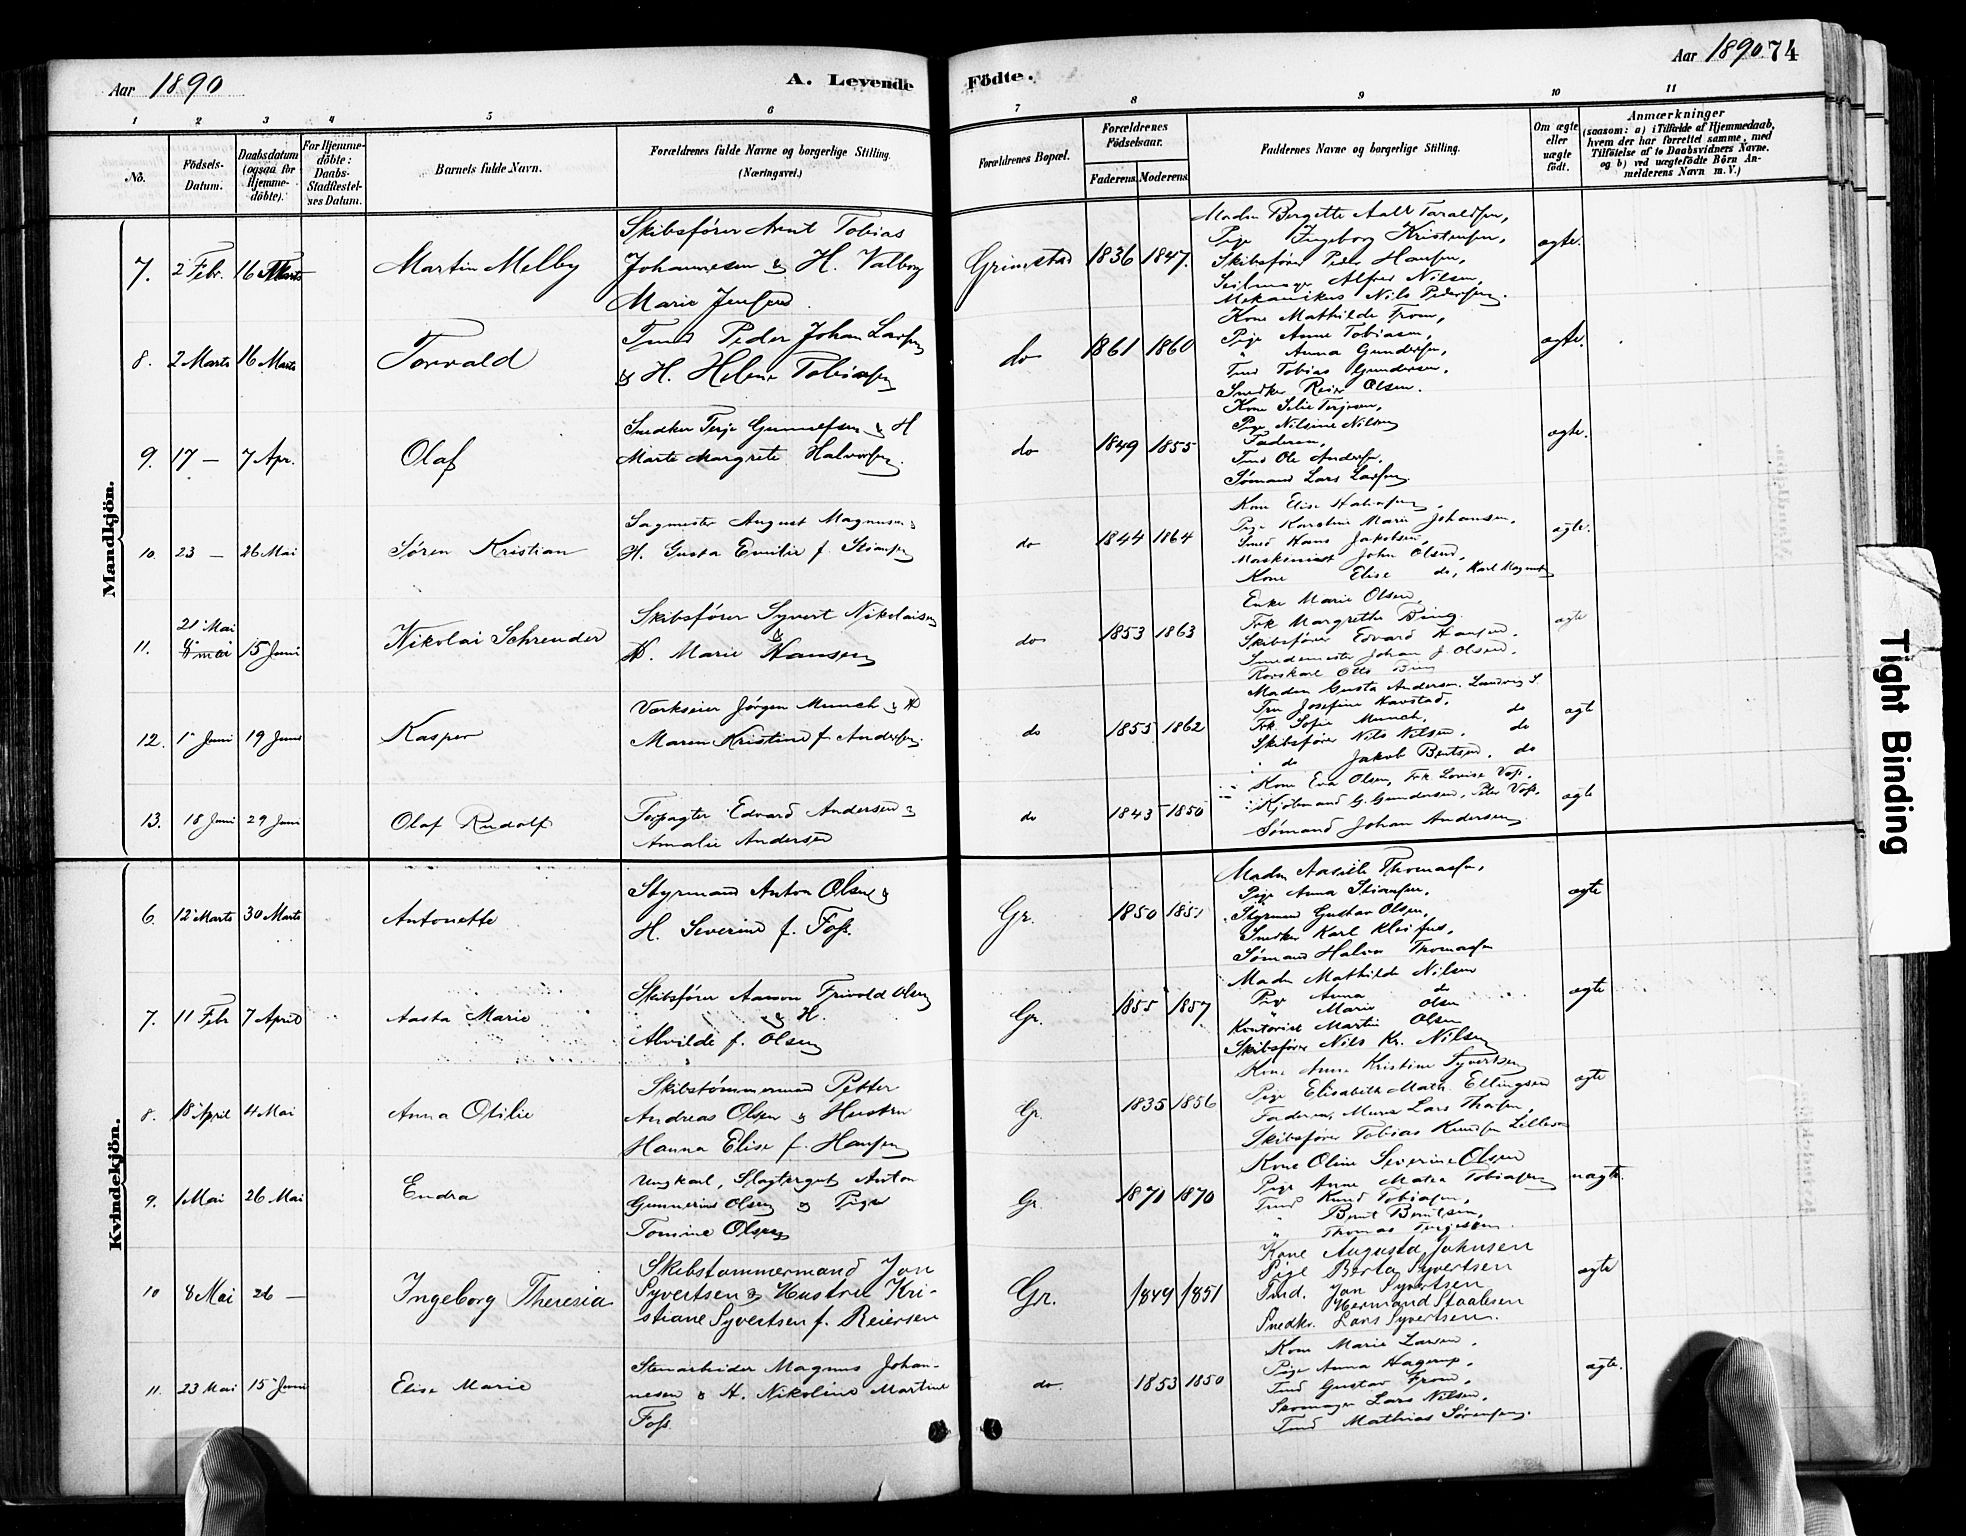 Aar 1890
A. Levende Födte.
Aar 1890. 74
1 2 3 4 5 6 7 8 9 10 11
No.
Födsels-Datum.
Daabsdatum (ogsaa for Hjemme-döbte).
For Hjemme-döbte: Daabs-Stadfæstel-ses Datum.
Barnets fulde Navn.
Forældrenes fulde Navne og borgerlige Stilling. (Næringsvei.)
Forældrenes Bopæl.
Forældrenes Födselsaar.
Faderens. Moderens.
Faddernes Navne og borgerlige Stilling.
Om ægte eller uægte födt.
Anmærkninger
(saasom: a) i Tilfælde af Hjemmedaab, hvem der har forrettet samme, med Tilföielse af to Daabsvidners Navne. og b) ved uægtefödte Börn An-melderens Navn m. V.)
Mandkjön.
7. 2 Febr. 16 Marts
Martin Melby
Skibsfører Arnt Tobias
Johannesen & H. Valborg
Marie Jensen
Grimstad 1836 1847.
Madm Bergette Aalv Taraldsen,
Pige Ingeborg Kristensen,
Skibsfører Peder Hansen,
Seilmager Alfred Nilsen,
Mekanikus Nils Pedersen.
ægte.
8. 2 Marts 16 Marts
Torvald
Tmd Peder Johan Larsen
& H. Helene Tobiasen
do 1861 1860
Kone Mathilde From,
Pige Anne Tobiasen,
" Anna Gundersen,
Tmd Tobias Gundersen,
Snedker Reier Olsen.
ægte.
9. 17 — 7 Apr.
Olaf
Snedker Terje Gunnulfsen & H
Marte Margrete Halvorsen.
do 1849 1855
Kone Silie Terjesen,
Pige Nilsine Nilsen
Faderen,
Tmd Ole Andersen,
Sømand Lars Larsen.
ægte.
10. 23 — 26 Mai
Søren Kristian
Sagmester August Magnusen &
H. Gusta Emilie f. Stiansen
do 1844 1864
Kone Elise Halvorsen,
Pige Karoline Marie Johansen,
Smed Hans Jakobsen,
Maskinist John Olsen,
Kone Elise do, Karl Magnusen
ægte.
11. 21 Mai 8 mai 15 Juni
Nikolai Schrender
Skibsfører Syvert Nikolaisen
& H. Marie Hansen
do 1853 1863
Enke Marie Olsen,
Frk Margrethe Bing.
Skibsfører Edvard Hansen,
Smedemester Johan J. Olsen,
Kovskarl Otto Bing
ægte
12. 1 Juni 19 Juni
Kasper
Værkseier Jørgen Munch & H
Maren Kristine f. Andersen.
do 1855 1862
Madm Gusta Andersen. Landvig S.
Fru Josefine Havstad, do
Frk Sofie Munch, do
Skibsfører Nils Nilsen, do
" do Jakob Bentsen. do
ægt
13. 18 Juni 29 Juni
Olaf Rudolf
Forpagter Edvard Andersen &
Amalie Andersen
do 1843 1850
Kone Eva Olsen, Frk Lovise Voss.
Kjøbmand G. Gundersen, Peter Voss.
Sømand Johan Andersen
ægte
Kvindekjön.
6. 12 Marts 30 Marts
Antonette
Styrmand Anton Olsen &
H. Severine f. Foss.
Gr. 1850 1851
Madm Aasille Thomassen,
Pige Anna Stiansen,
Styrmand Gustav Olsen,
Snedker Karl
Sømand Halvor Thomassen
ægte
7. 11 Febr 7 April
Aasta Marie
Skibsfører Aanon Frivold Olsen
& H.
Alvilde f. Olsen
Gr. 1855 1857
Madm Mathilde Nilsen
Pige Anna do
" Marie Olsen
Kontorist Martin Olsen
Skibsfører Nils Kr. Nilsen
ægte
8. 18 April 4 Mai
Anna Otilie
Skibstømmermand Petter
Andreas Olsen & Hustru
Hanna Elise f. Hansen
Gr. 1835 1856
Kone Anne Kristine Syvertsen
Pige Elisabeth Math. Ellingsen
Faderen, Murer Lars Thorsen,
Skibsfører Tobias Knudsen Lillesand
ægte
9. 1 Mai 26 Mai
Endra
Ungkarl, Slagtergut Anton
Gunnerius Olsen & Pige
Tomine Olsen
Gr. 1871 1870
Kone Oline Severine Olsen
Pige Anne Matea Tobiasen
Tmd Knud Tobiasen,
" Bernt Berntsen,
" Thomas Terjesen
uægte.
10 8 Mai 26 —
Ingeborg Theresia
Skibstømmermand Jon
Syvertsen & Hustru Kri-
stiane Syvertsen f. Reiersen
Gr. 1849 1851
Kone Augusta Johnsen
Pige Berta Syvertsen
Tmd. Jon Syvertsen
Hermand Staalesen
Snedkr. Lars Syvertsen.
ægte
11. 23 Mai 15 Juni
Elise Marie
Stenarbeider Magnus Johan-
nesen & H. Nikoline Martine
Foss
do. 1853 1850
Kone Marie Larsen,
Pige Anna Hagerup,
Tmd Gustav From,
Skomager Lars Nilsen,
Tmd Mathias Sørensen.
ægte.
Tight Binding